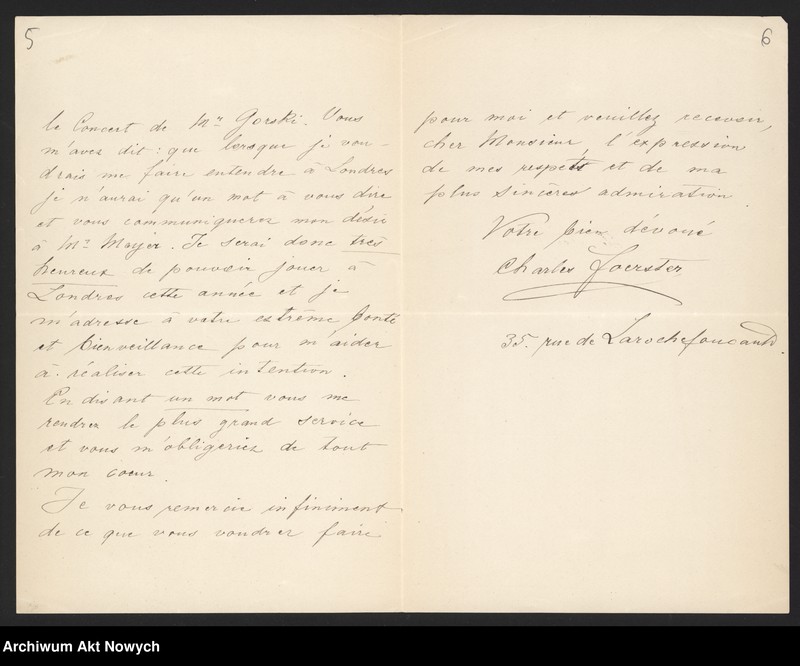 5
le Concert de Mr Gorski. Vous
m'avez dit: que lorsque je vou-
drais me faire entendre à Londres
je n'aurai qu'un mot à vous dire
et vous communiquerez mon désir
à Mr Mayer. Je serai donc très
heureux de pouvoir jouer à
Londres cette année et je
m'adresse à votre extrême bonté
et bienveillance pour m'aider
à réaliser cette intention.
En disant un mot vous me
rendrez le plus grand service
et vous m'obligeriez de tout
mon coeur.
Je vous remercie infiniment
de ce que vous voudrez faire
6
pour moi et veuillez recevoir,
cher Monsieur, l'expression
de mes respects et de ma
plus sincères admiration.
Votre bien dévoué
Charles Foerster
35. rue de Larochefoucauld.
Archiwum Akt Nowych